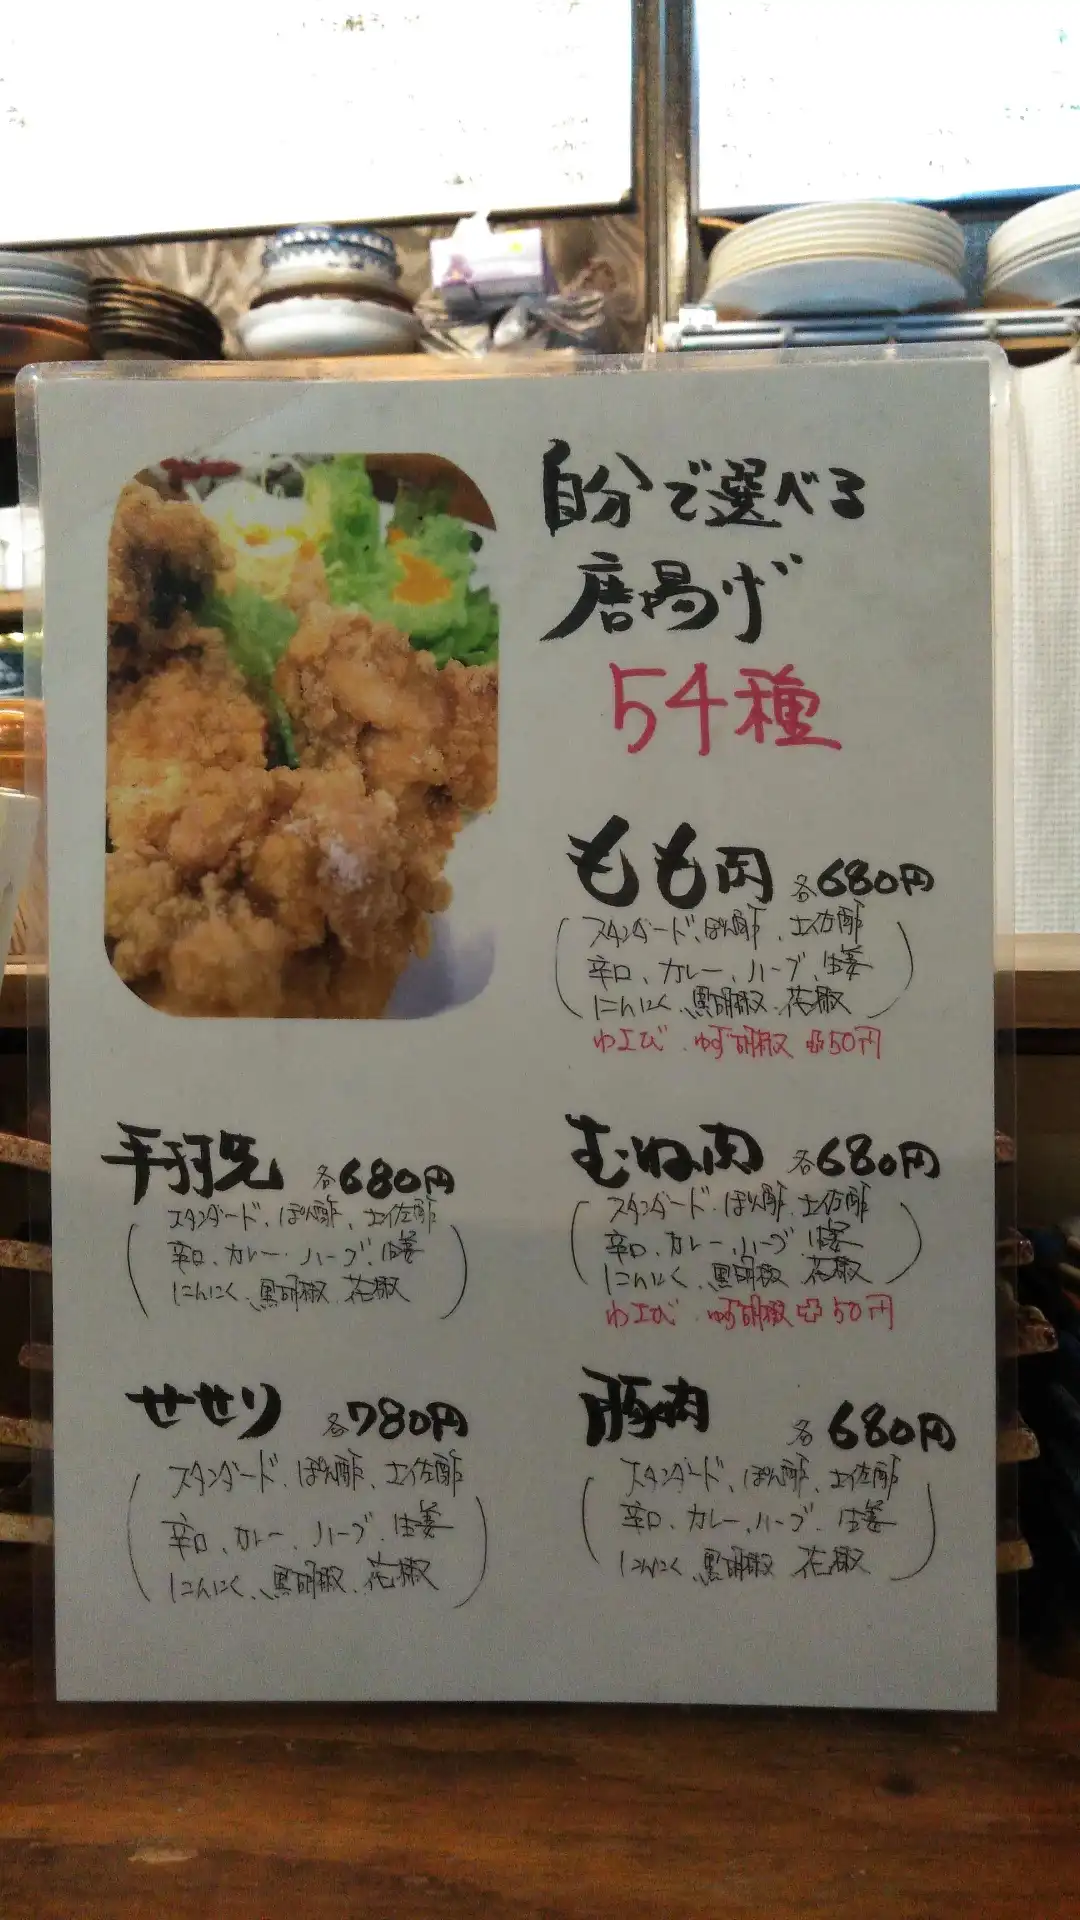 自分で選べる
唐揚げ
54種
もも肉 各680円
(スタンダード、ぽん酢、土佐酢
辛口、カレー、ハーブ、生姜
にんにく、黒胡椒、花椒)
わさび、ゆず胡椒 +50円
手羽先 各680円
(スタンダード、ぽん酢、土佐酢
辛口、カレー、ハーブ、生姜
にんにく、黒胡椒、花椒)
むね肉 各680円
(スタンダード、ぽん酢、土佐酢
辛口、カレー、ハーブ、生姜
にんにく、黒胡椒、花椒)
わさび、ゆず胡椒 +50円
せせり 各780円
(スタンダード、ぽん酢、土佐酢
辛口、カレー、ハーブ、生姜
にんにく、黒胡椒、花椒)
豚肉 各680円
(スタンダード、ぽん酢、土佐酢
辛口、カレー、ハーブ、生姜
にんにく、黒胡椒、花椒)